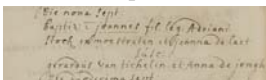 Die nona sept
Baptis: Joannes fil. leg. Adriani
Stock, in moestraten et Joanna de laet
susc:
gerardus van tichelen et Anna de jongh